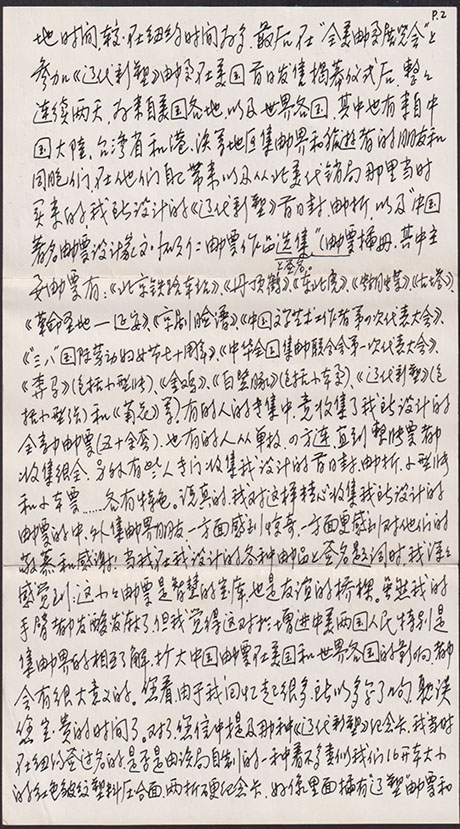 P.2
地时间较在纽约时间存了。最后在“全美邮票展览会”上
参加《辽代彩塑》邮票在美国首日发售揭幕仪式后,整整
连续两天,为来自美国各地,以及世界各国,其中也有来自中
国大陆、台湾省和港、澳等地区集邮界和旅游者的朋友和
同胞们,在他们自己带来以及从北美代销局那里当时
买来的我所设计的《辽代彩塑》首日封、邮折,以及“中国
著名邮票设计家 邮票作品选集”(邮票插册,其中主
上签名。
要邮票有:《北京铁路车站》、《丹顶鹤》、《东北虎》、《 》、《古塔》、
《革命圣地—延安》、《京剧脸谱》、《中国文学艺术工作者第四次代表大会》、
《“三八”国际劳动妇女节七十周年》、《中华全国集邮联合会第一次代表大会》、
《奔马》(包括小型张)、《金鸡》、《白鱀豚》(包括小本票)、《辽代彩塑》(包
括小型张)和《菊花》等,有的人的专集中,竟收集了我所设计的
全部邮票(五十余套),也有的人从单枚、四方连直到整张票都
收集很全,另外有些人专门收集我设计的首日封、邮折、小型张
和小本票……各有特色。说真的,我对这样精心收集我所设计的
邮票的中、外集邮界朋友一方面感到惊奇,一方面更感到对他们的
敬慕和感谢!当我在我设计的各种邮品上签名题词时,我深深
感觉到:这小小邮票是智慧的宝库,也是友谊的桥梁。虽然我的
手臂都发酸发麻了,但我觉得这对于增进中美两国人民特别是
集邮界的相互了解,扩大中国邮票在美国和世界各国的影响,都
会有很大意义的。您看,由于我回忆起很多,所以多写了几句,耽误
您宝贵的时间了。对了,您信中提及那种《辽代彩塑》纪念卡,我当时
在纽约签过名的,是否是由该局自制的一种看不多类似我们16开本大小
的红色皱纹塑料压合面,两折硬纪念卡,好像里面插有“辽塑”邮票和